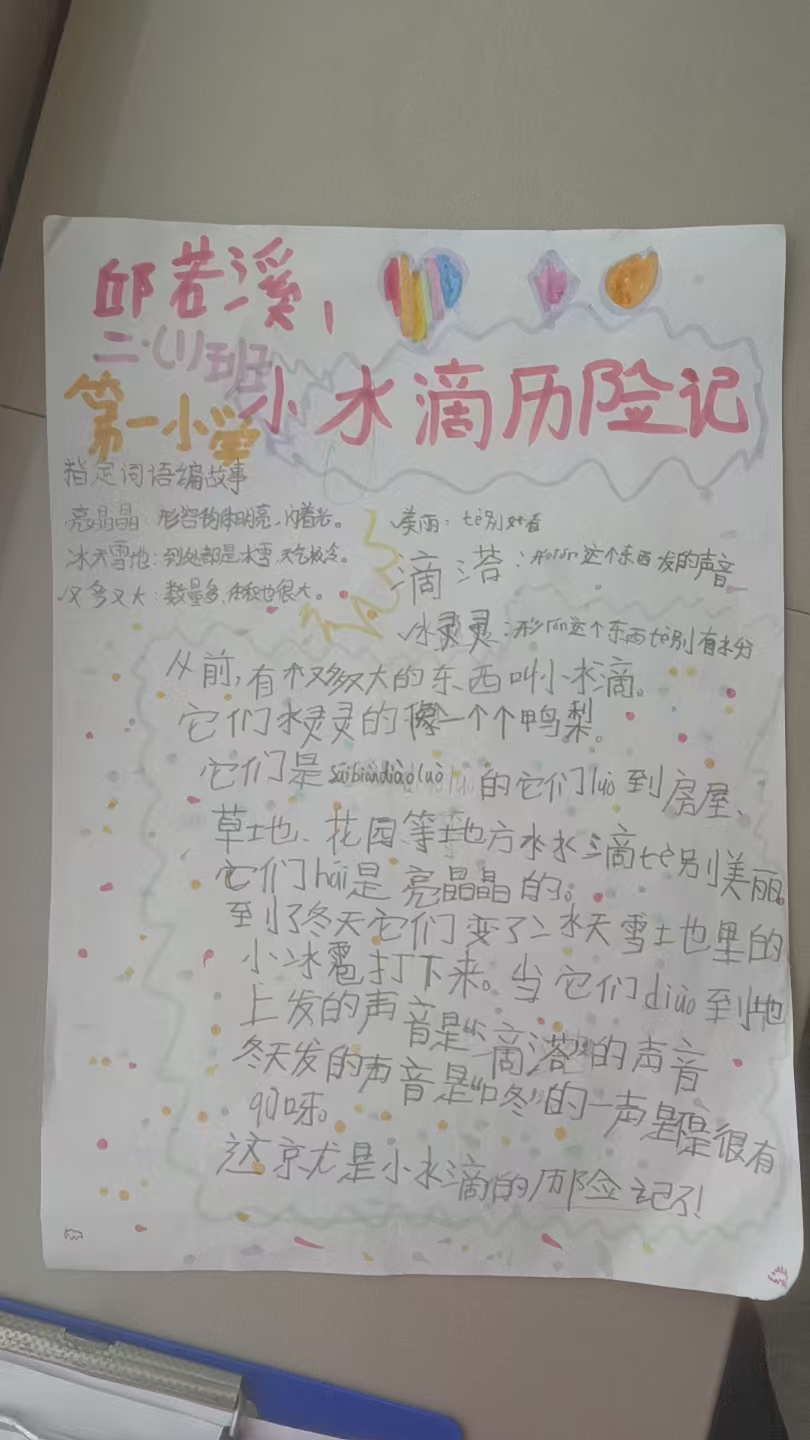 邱若溪
二·(1)班
第一小学
小水滴历险记
指定词语编故事
亮晶晶:形容物体明亮、闪着光。
冰天雪地:到处都是冰雪,天气极冷。
又多又大:数量多、体积也很大。
美丽:tè别好看
滴嗒:这个东西发的声音
水灵灵:形róng这个东西tè别有水分
从前,有个又多又大的东西叫小水滴。
它们水灵灵的像一个个鸭梨。
它们是suíbiàndiàoluò的它们luò到房屋、
草地、花园等地方水水滴tè别美丽。
它们hái是亮晶晶的。
到了冬天它们变了冰天雪地里的
小冰雹打下来。当它们diào到地
上发的声音是“滴嗒”的声音
冬天发的声音是“咚”的一声是是很有
的呀。
这就是小水滴的历险记了!